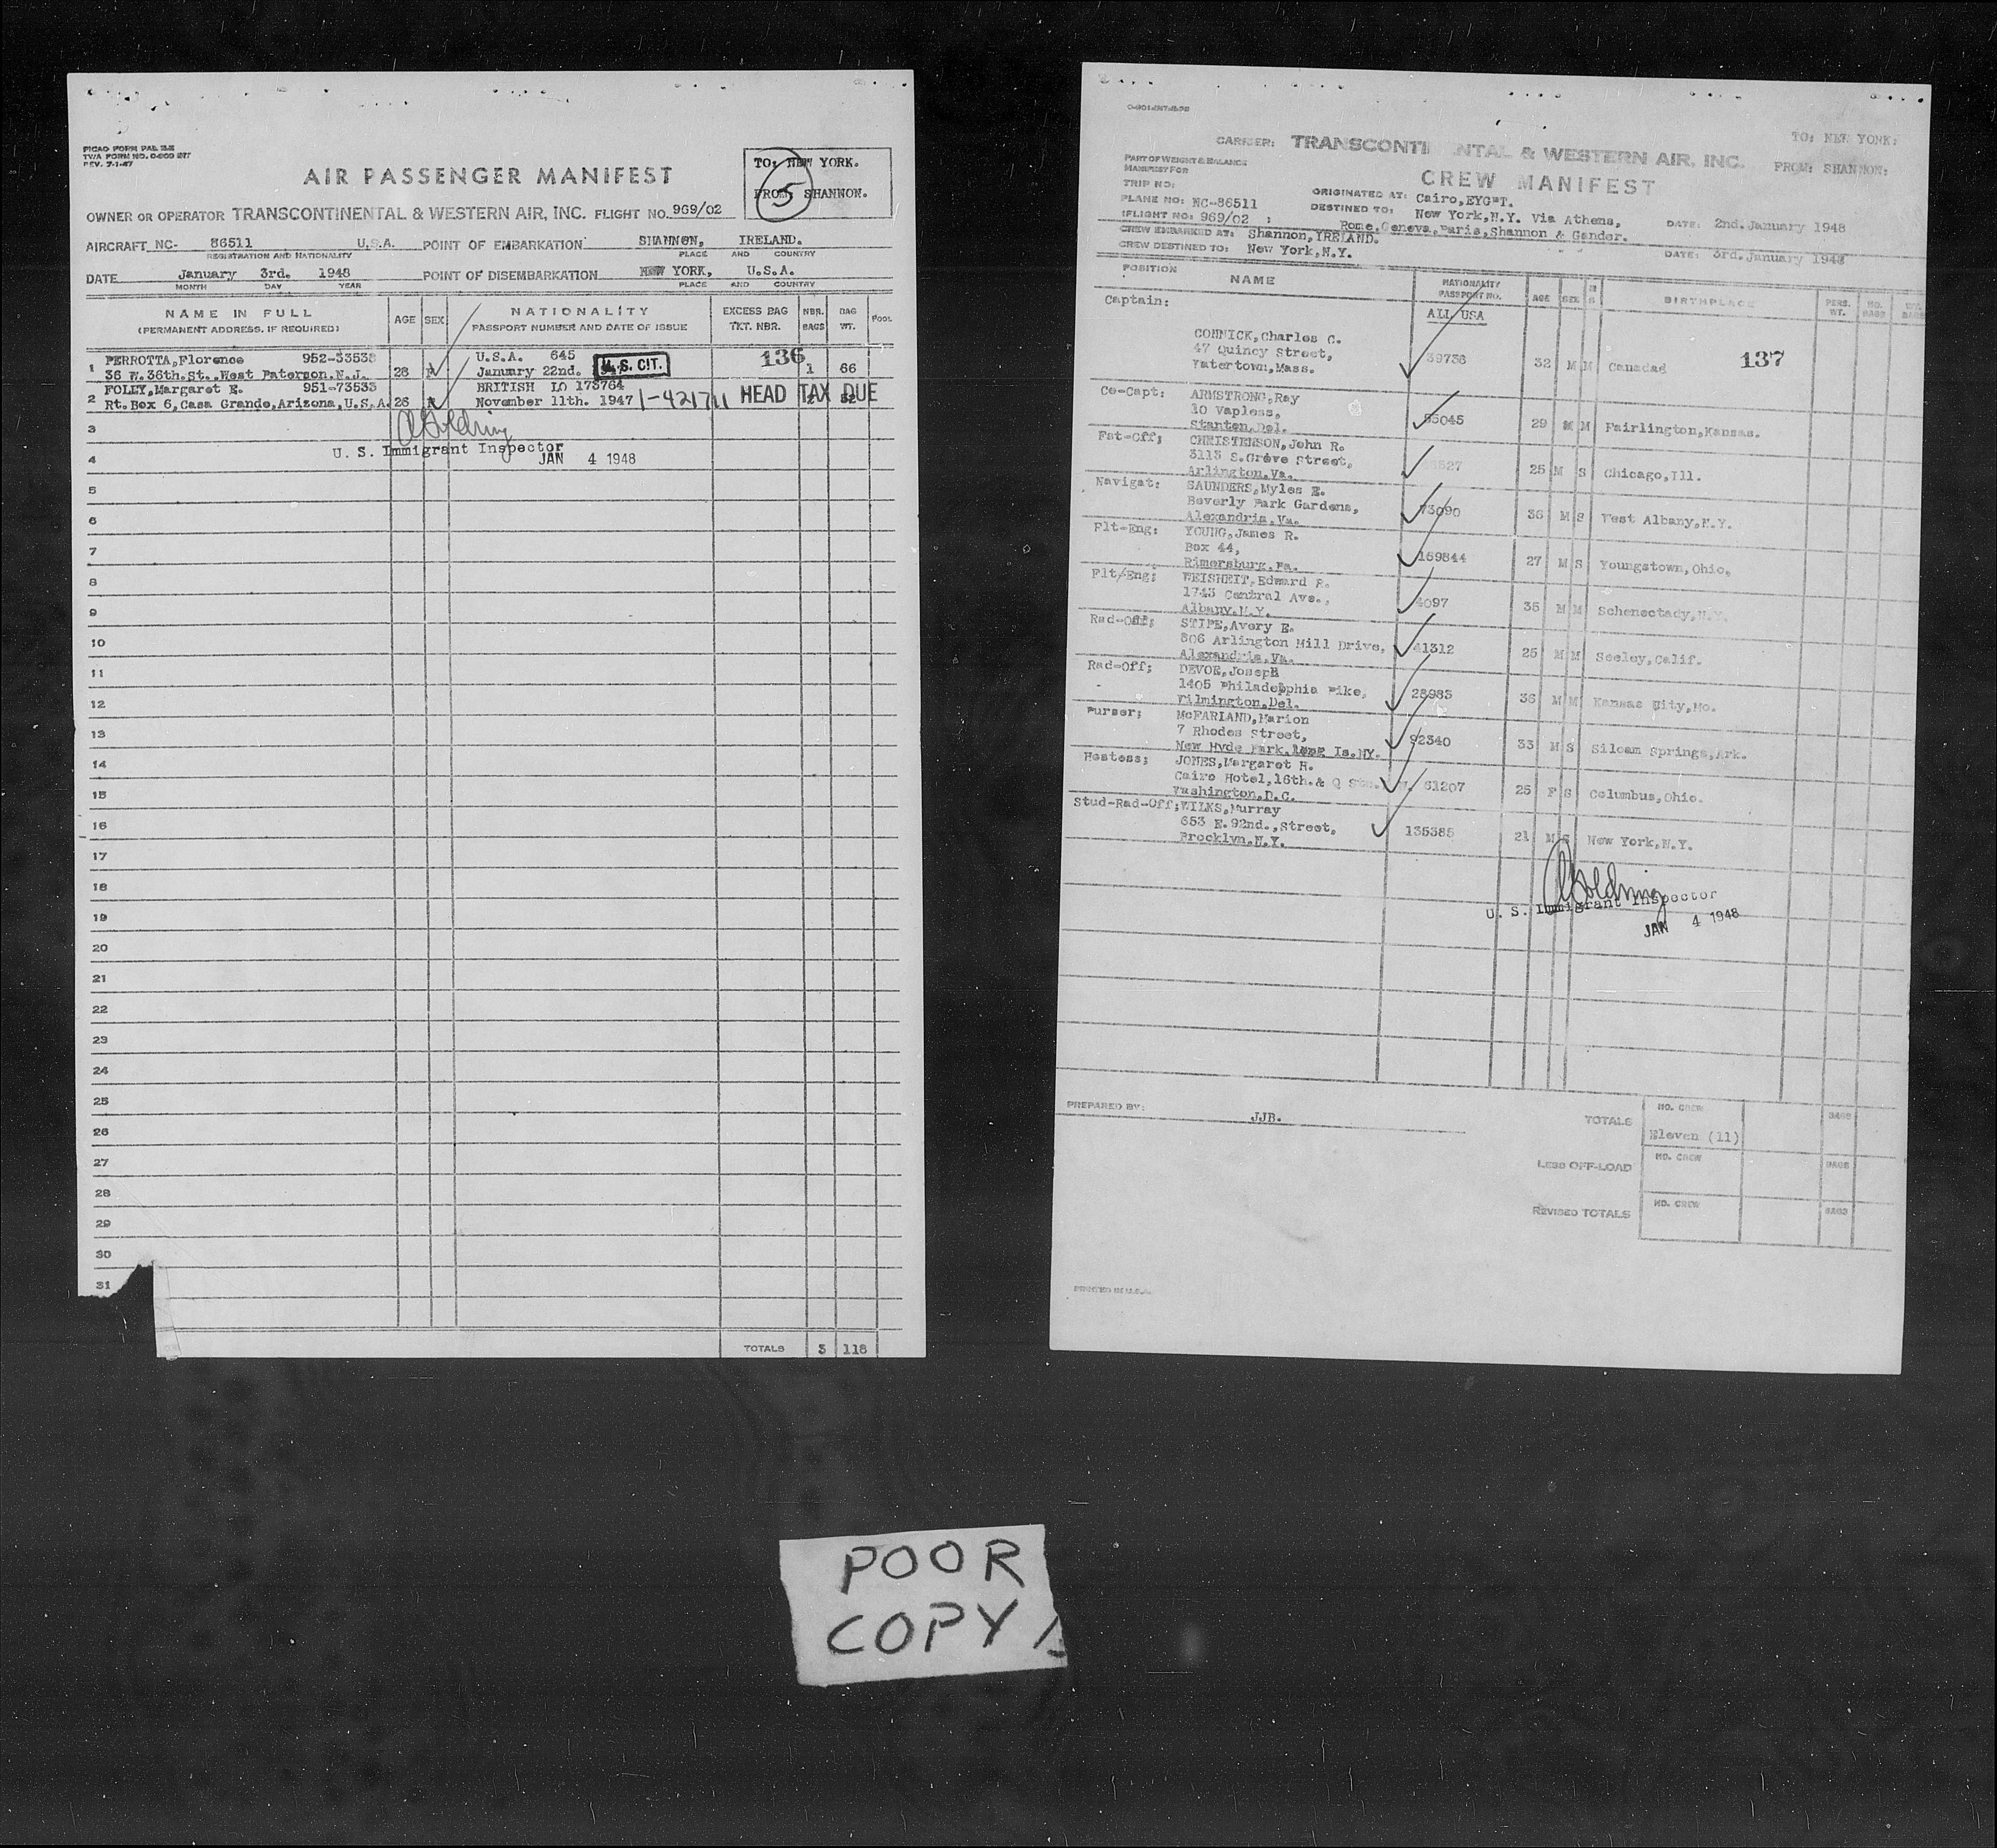 PICAO FORM PAL
TWA FORM NO.
REV. 7-1-47
AIR PASSENGER MANIFEST
TO: NEW YORK.
FROM: SHANNON.
5
OWNER OR OPERATOR TRANSCONTINENTAL & WESTERN AIR, INC. FLIGHT NO. 969/02
AIRCRAFT NC- 86511 U.S.A. POINT OF EMBARKATION SHANNON, IRELAND.
REGISTRATION AND NATIONALITY PLACE AND COUNTRY
DATE January 3rd. 1948 POINT OF DISEMBARKATION NEW YORK, U.S.A.
MONTH DAY YEAR PLACE AND COUNTRY
NAME IN FULL AGE SEX NATIONALITY EXCESS BAG NBR. BAG POOL
(PERMANENT ADDRESS, IF REQUIRED) PASSPORT NUMBER AND DATE OF ISSUE TKT. NBR. BAGS WT.
PERROTTA,Florence 952-33538 U.S.A. 645 136
1 36 W.36th.St.,West Paterson.N.J. 28 F January 22nd. U.S. CIT. 1 66
FOLLY,Margaret E. 951-73533 BRITISH LO 173764
2 Rt.Box 6,Casa Grande,Arizona,U.S.A. 26 F November 11th. 1947 1-421711 HEAD TAX DUE 52
3 AGoldring
U. S. Immigrant Inspector
4 JAN 4 1948
5
6
7
8
9
10
11
12
13
14
15
16
17
18
19
20
21
22
23
24
25
26
27
28
29
30
31
TOTALS 3 118
CARRIER: TRANSCONTINENTAL & WESTERN AIR, INC.
TO: NEW YORK:
FROM: SHANNON:
CREW MANIFEST
PART OF WEIGHT & BALANCE
MANIFEST FOR
TRIP NO:
PLANE NO: NC-86511 ORIGINATED AT: Cairo,EYGPT.
FLIGHT NO: 969/02 : DESTINED TO: New York,N.Y. Via Athens, DATE: 2nd.January 1948
Rome,Geneva,Paris,Shannon & Gander.
CREW EMBARKED AT: Shannon,IRELAND.
CREW DESTINED TO: New York,N.Y. DATE: 3rd.January 1948
POSITION NAME NATIONALITY PASSPORT NO. AGE SEX M S BIRTHPLACE PERS. WT. NO. BAGS WT. BAGS
Captain: ALL USA
CONNICK,Charles C.
47 Quincy Street, 39736 32 M M Canadad 137
Watertown,Mass.
Co-Capt: ARMSTRONG,Ray
10 Vapless, 35045 29 M M Fairlington,Kansas.
Stanton,Del.
Fst-Off; CHRISTENSON,John R.
3113 S.Grove Street, 25 M S Chicago,Ill.
Arlington,Va.
Navigat: SAUNDERS,Myles E.
Beverly Park Gardens, 73090 36 M S West Albany,N.Y.
Alexandria,Va.
Flt-Eng: YOUNG,James R.
Box 44, 159844 27 M S Youngstown,Ohio,
Rimersburg,Pa.
Flt/Eng; WEISHEIT,Edward F.
1743 Central Ave., 4097 35 M M Schenectady,N.Y.
Albany.N.Y.
Rad-Off; STIPE,Avery E.
806 Arlington Mill Drive, 41312 25 M M Seeley,Calif.
Alexandria,Va.
Rad-Off; DEVOE,Joseph
1405 Philadelphia Pike, 28983 36 M M Kansas City,Mo.
Wilmington,Del.
Purser; McFARLAND,Marion
7 Rhodes Street, 92340 33 M S Siloam Springs,Ark.
New Hyde Park,Long Is.NY.
Hostess; JONES,Margaret H.
Cairo Hotel,16th.& Q Sts. 61207 25 F S Columbus,Ohio.
Washington,D.C.
Stud-Rad-Off;WILKS,Murray
653 E.92nd.,Street, 135385 21 M S New York,N.Y.
Brooklyn,N.Y.
AGoldring
U. S. Immigrant Inspector
JAN 4 1948
PREPARED BY: JJB.
TOTALS NO. CREW BAGS
Eleven (11)
LESS OFF-LOAD NO. CREW BAGS
REVISED TOTALS NO. CREW BAGS
PRINTED IN U.S.A.
POOR
COPY